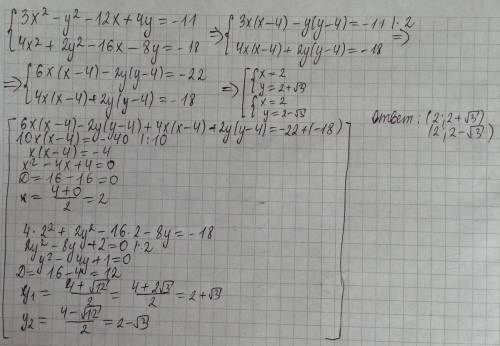 {3x² - y² - 12x + 4y = -11 => {3x(x-4) - y(y-4) = -11 |·2 =>
{4x² + 2y² - 16x - 8y = -18 {4x(x-4) + 2y(y-4) = -18
=> {6x(x-4) - 2y(y-4) = -22 => [{x = 2
{y = 2+√3
{4x(x-4) + 2y(y-4) = -18 {x = 2
{y = 2-√3
Ответ: (2; 2+√3)
(2; 2-√3)
6x(x-4) - 2y(y-4) + 4x(x-4) + 2y(y-4) = -22 + (-18)
10x(x-4) = -40 |:10
x(x-4) = -4
x² - 4x + 4 = 0
D = 16 - 16 = 0
x = (4+0)/2 = 2
4·2² + 2y² - 16·2 - 8y = -18
2y² - 8y + 2 = 0 |:2
y² - 4y + 1 = 0
D = 16 - 4 = 12
y₁ = (4+√12)/2 = (4+2√3)/2 = 2+√3
y₂ = (4-√12)/2 = 2-√3